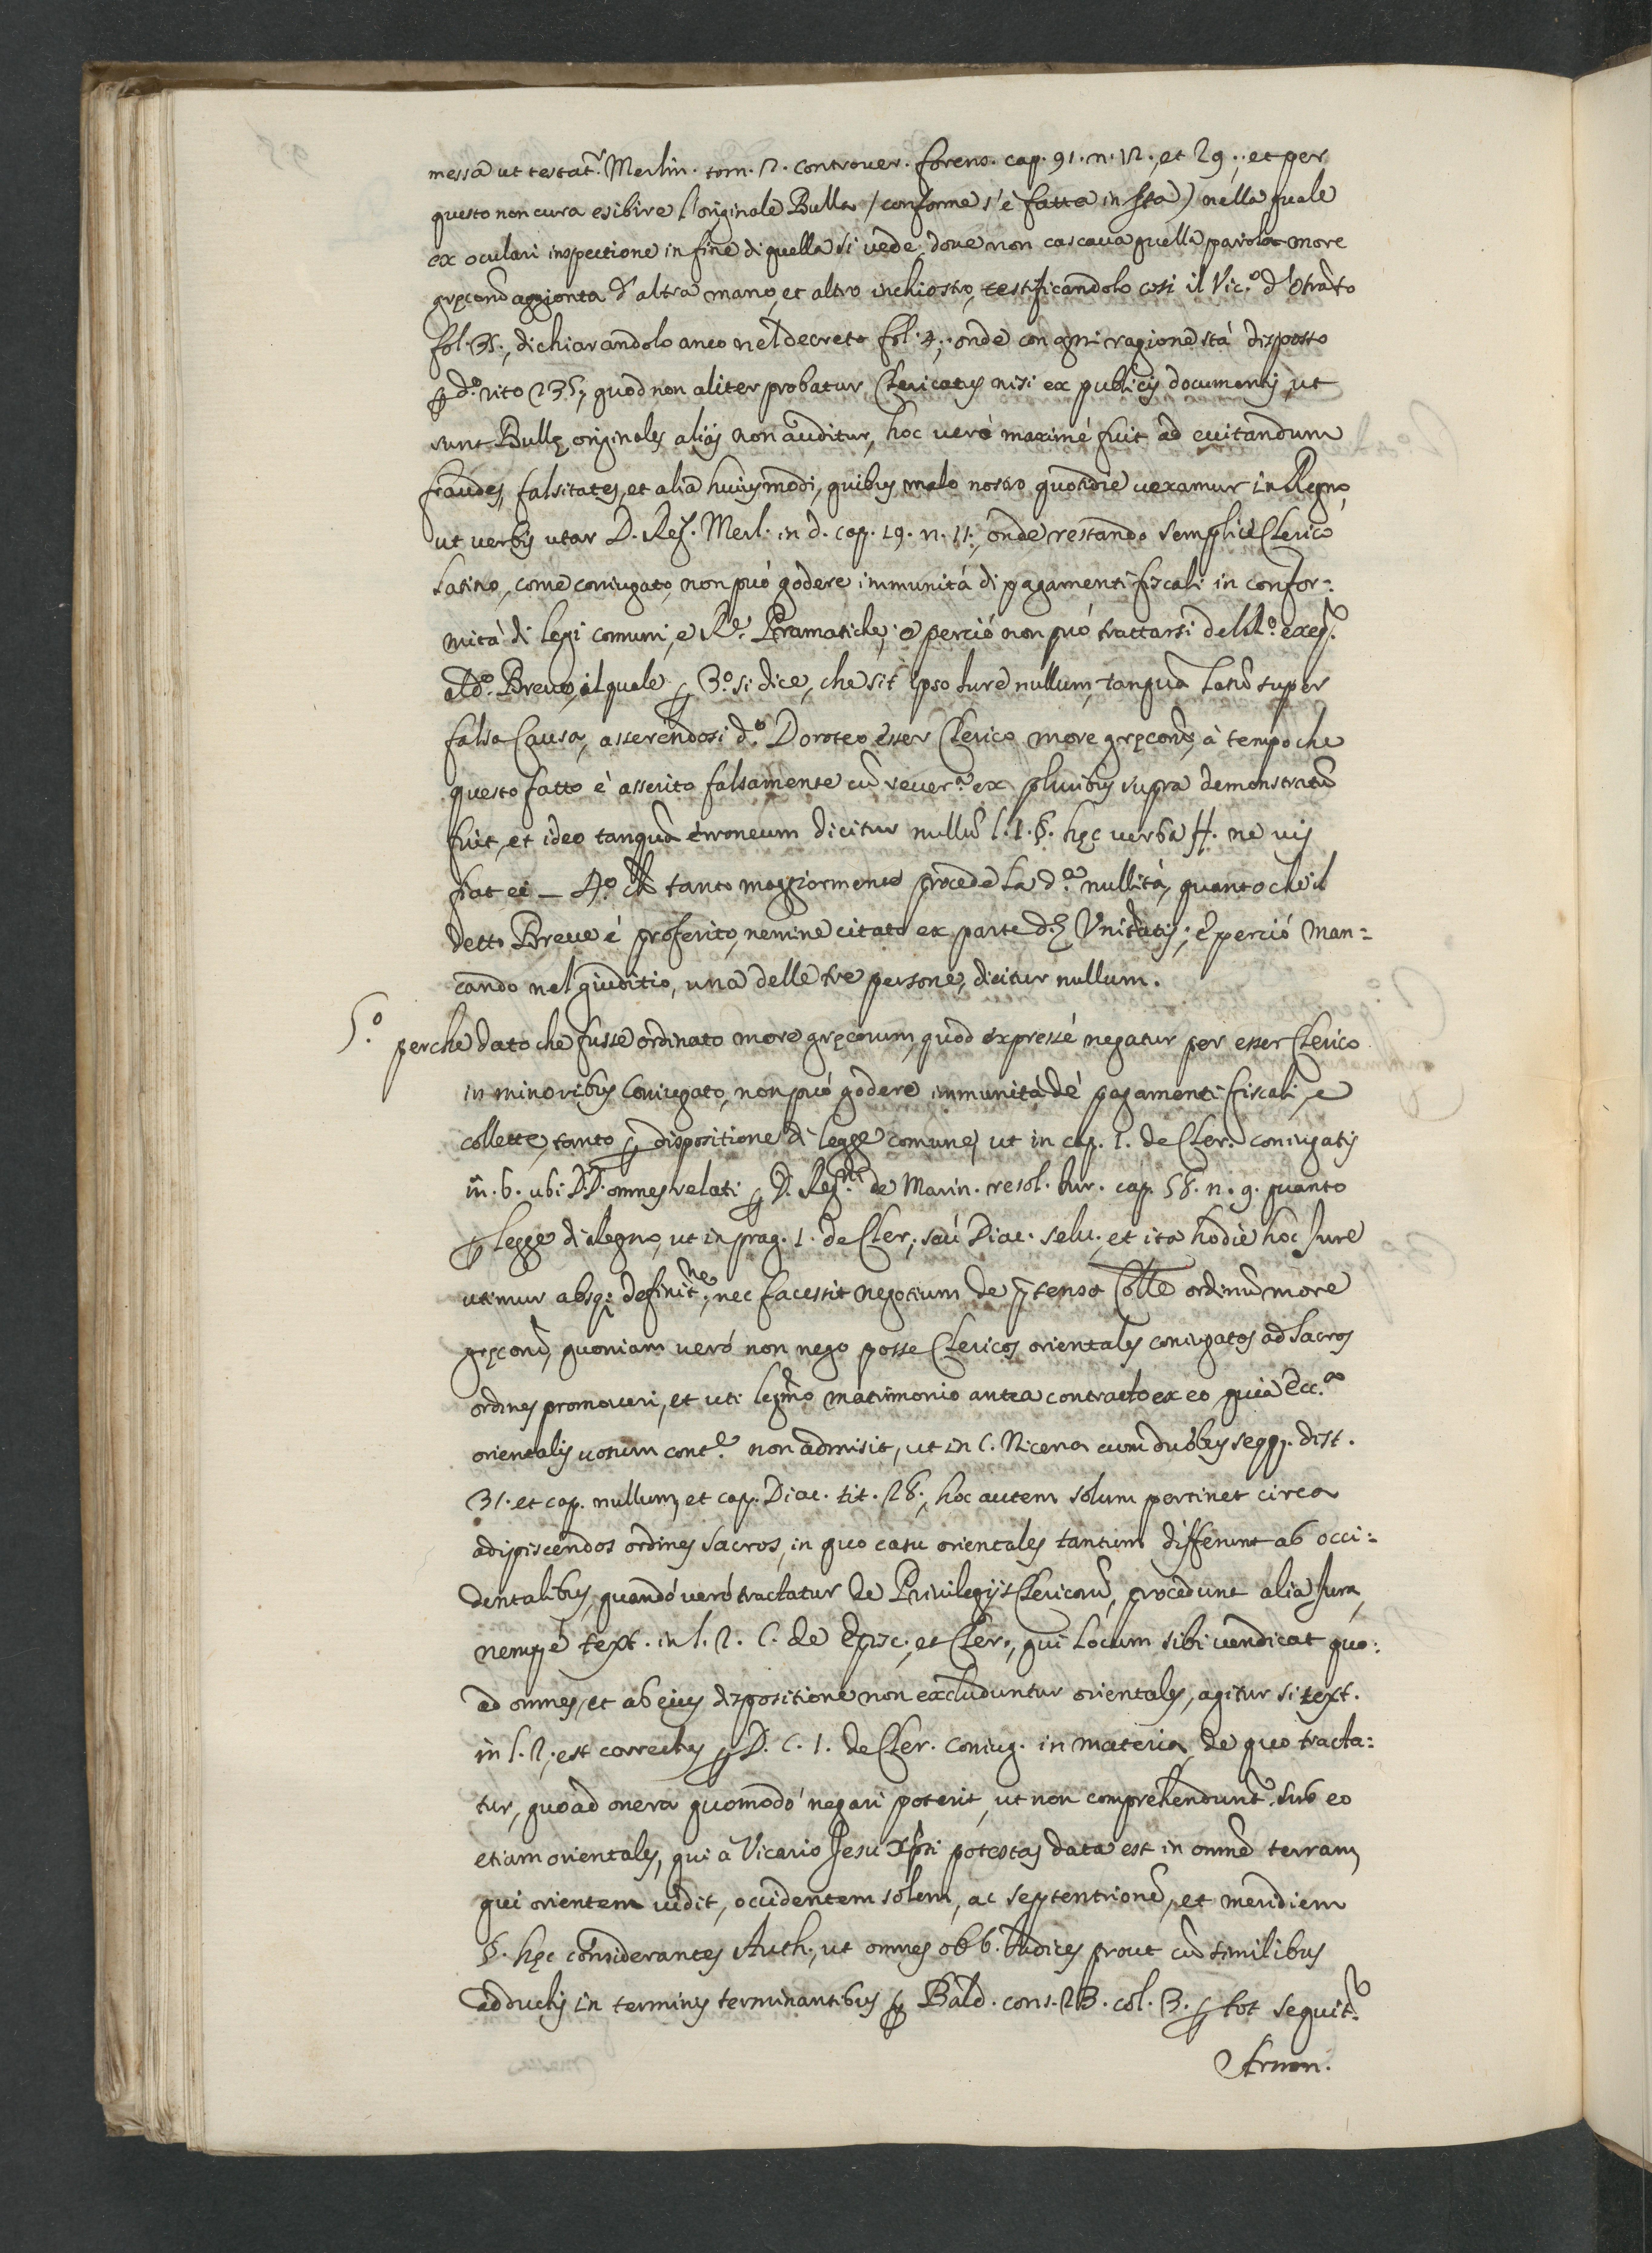 messa ut testat.r Merlin. tom. 2. controuer. forens. cap. 91. n. 12., et 29., et per
questo non cura esibire l'originale Bulla (conforme s'è fatta in Sta) nella quale
ex oculari inspectione in fine di quella si vede, doue non cascaua quella parola more
gręcorũ aggionta d'altra mano, et altro inchiostro, testificandolo così il Vic.o d'Otrãto
fol. 35., dichiarandolo anco nel decreto fol. 4., onde con ogni ragione stà disposto
ꝑ d.o rito 235., quod non aliter probatur Clericatus nisi ex publicis documentis, ut
sunt Bullę originales aliàs non auditur, hoc verò maximè fuit ad euitandum
fraudes, falsitates, et alia huiusmodi, quibus malo nostro quotidie uexamur in Regno,
ut verbis utar D. Reg. Merl. in d. cap. 19. n. 11., onde restando semplice Clerico
Latino, come coniugato, non può godere immunità di pagamenti fiscali in confor=
mità di legi comuni, e R.e Pramatiche; e perciò non può trattarsi dell'o exeq.r
al d.o Breue, il quale ꝑ 3.o si dice, che sit ipso Iure nullum, tanquã Latũ super
falsa Causa, asserendosi d.o Doroteo esser Clerico more gręcorũ, à tempo che
questo fatto è asserito falsamente cũ reuer.a ex pluribus supra demonstratũ
fuit, et ideo tanquã erroneum dicitur nullũ l. 1. §. hęc verba ff. ne vis
fiat ei _ 4.o Ch tanto maggiormente procede la d.a nullità, quanto che il
detto Breue è proferito, nemine citato ex parte d.ę Vniũatis; E perciò man=
cando nel giuditio, una delle tre persone, dicitur nullum.
5.o perche dato che fusse ordinato more gręcorum, quod expressè negatur per esser Clerico
in minoribus Coniugato, non può godere immunità dè pagamenti fiscali, e
collette, tanto ꝑ dispositione di legge comune, ut in cap. 1. de Cler. coniugatis
in. 6. ubi DD. omnes relati ꝑ D. Reg.tẽ de Marin. resol. Iur. cap. 58. n. 9. quanto
ꝑ legge di Regno, ut in prag. 1. de Cler., seù Diac. selu., et ita hodie hoc Iure
utimur absq; definit.ne, nec facessit negotium de p̃tenso Colle ordinũ more
gręcorũ, quoniam verò non nego posse Clericos orientales coniugatos ad Sacros
ordines promoueri, et uti legm̃o matrimonio antea contracto ex eo, quia Ecc.a
orientalis uotum cont.e non admisit, ut in C. Nicena cum duobus seqq. dist.
31. et cap. nullum, et cap. Diac. tit. 28., hoc autem solum pertinet circa
adipiscendos ordines sacros, in quo casu orientales tantum differunt ab occi=
dentalibus, quandò verò tractatur de Priuilegijs Clericorũ, procedunt alia Iura,
nempè text. in l. 2. C. de Episc., et Cler., qui locum sibi uendicat quo=
ad omnes, et ab eius dispositione non excluduntur orientales, agitur si text.
in l. 2., est correctus ꝑ D. C. 1. de Cler. Coniug. in materia, de quo tracta=
tur, quoad onera quomodò negari poterit, ut non comprehendunt.r sub eo
etiam orientales, qui a Vicario Jesu Xp̃ti potestas data est in omnẽ terram,
qui orientem uidit, occidentem solem, ac septentrionẽ, et meridiem
§. hęc considerantes Auth., ut omnes obb. Iudices prout cũ similibus
adductis in terminis terminantibus ꝑ Bald. cons. 23. col. 3. ꝑ tot sequit.r
Armon.